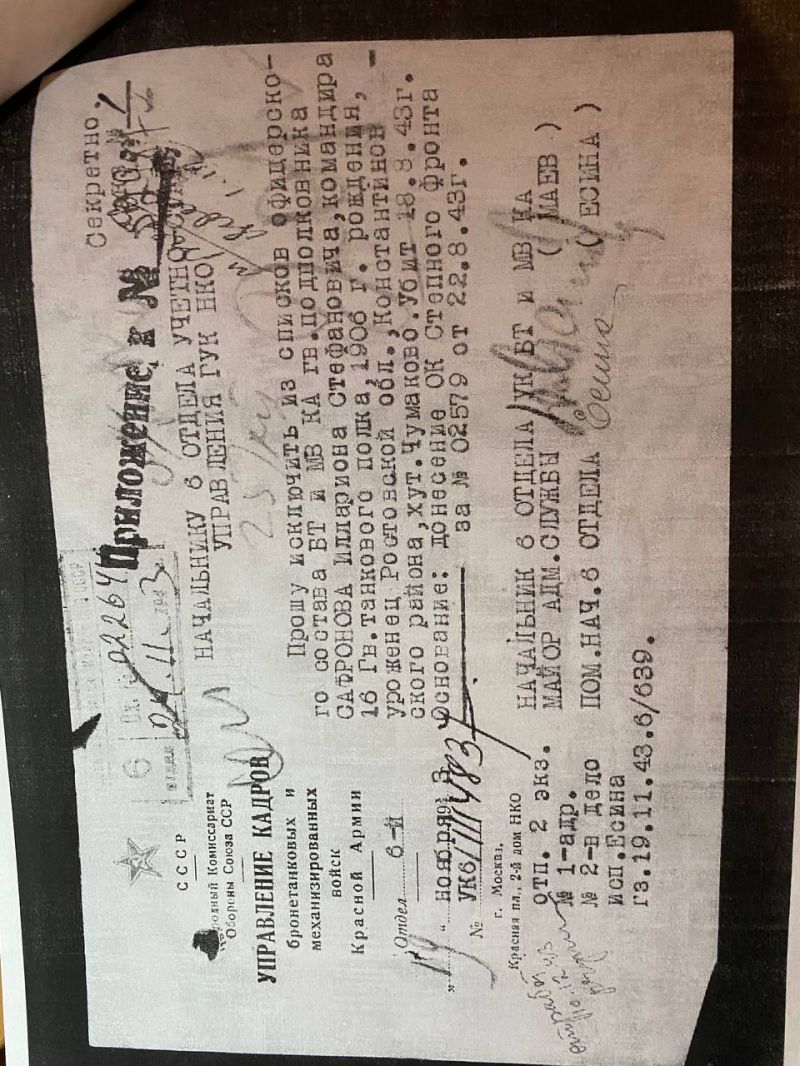 Секретно.
Приложение к №
6
02264
24.11.1943
СССР
Народный Комиссариат
Обороны Союза ССР
УПРАВЛЕНИЕ КАДРОВ
бронетанковых и
механизированных
войск
Красной Армии
Отдел 6-й
"19" ноября 1943
№ УК6/III/4837
г. Москва,
Красная пл., 2-й дом НКО
НАЧАЛЬНИКУ 6 ОТДЕЛА УЧЕТНО
УПРАВЛЕНИЯ ГУК НКО
Прошу исключить из списков офицерско-
го состава БТ и МВ КА гв.подполковника
САФРОНОВА Иллариона Стефановича,командира
16 Гв.танкового полка,1906 г. рождения, -
уроженец Ростовской обл.,Константинов
ского района,хут.Чумаково.Убит 18.8.43г.
Основание: донесение ОК Степного фронта
за № 02579 от 22.8.43г.
НАЧАЛЬНИК 6 ОТДЕЛА УК БТ И МВ КА
МАЙОР АДМ.СЛУЖБЫ ( МАЕВ )
ПОМ.НАЧ.6 ОТДЕЛА Есина ( ЕСИНА )
отп. 2 экз.
№ 1-адр.
№ 2-в дело
исп.Есина
гз.19.11.43.6/639.